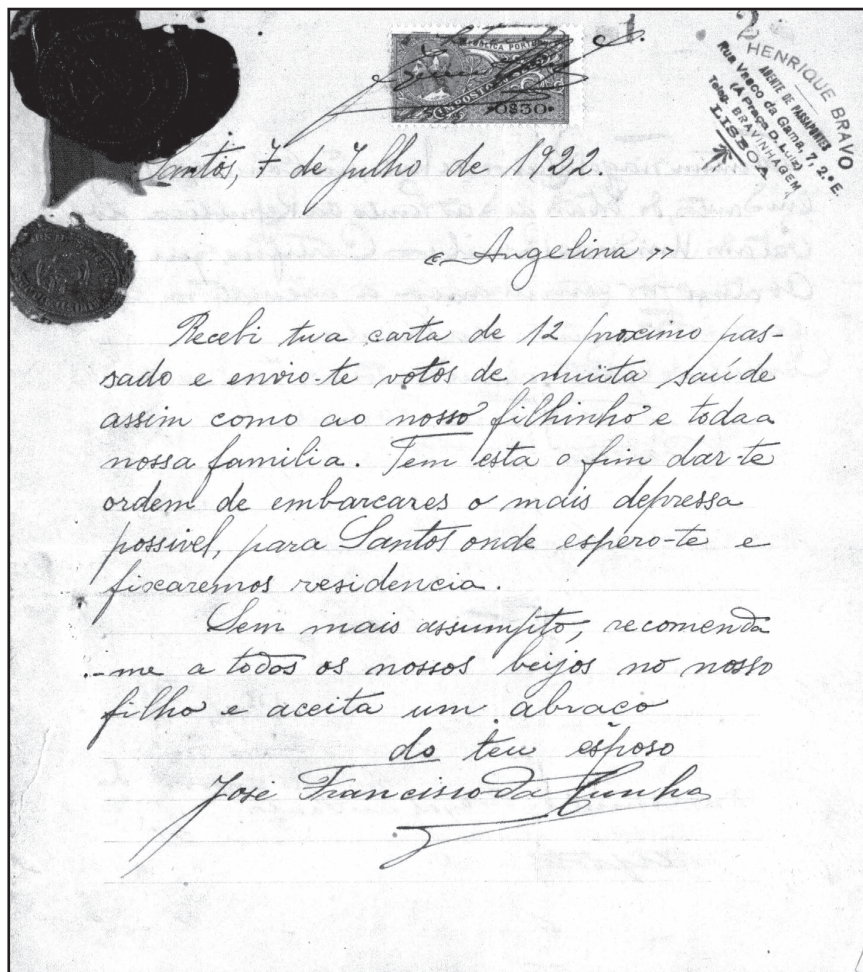 1 2
REPUBLICA PORTU
IMPOSTO
0$30
HENRIQUE BRAVO
AGENTE DE PASSAPORTES
Rua Vasco da Gama, 7, 2.º E.
(Á Praça D. Luiz)
Teleg. BRAVINHAGEM
LISBOA
Santos, 7 de Julho de 1922.
"Angelina"
Recebi tua carta de 12 proximo pas-
sado e envio-te votos de muita saúde
assim como ao nosso filhinho e toda a
nossa familia. Tem esta o fim dar-te
ordem de embarcares o mais depressa
possivel, para Santos onde espero-te e
fixaremos residencia.
Sem mais assumpto, recomenda
-me a todos os nossos beijos no nosso
filho e aceita um abraço
do teu esposo
José Francisco da Cunha